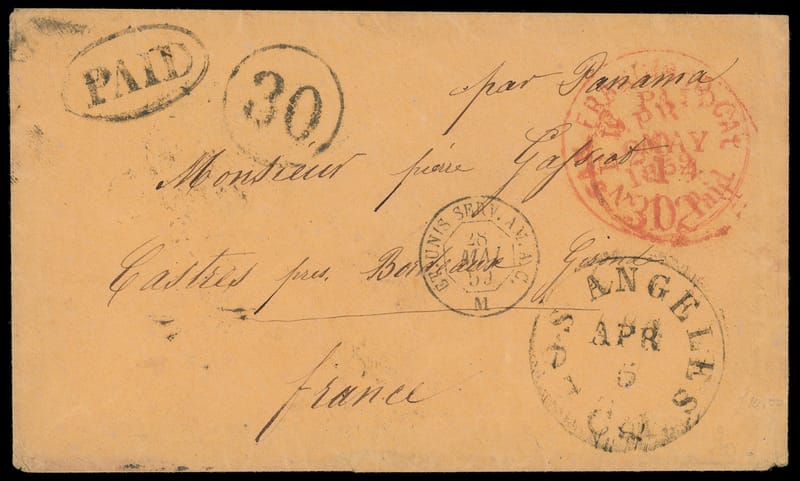 PAID
30
par Panama
Monsieur pierre Gassiot
Castres près Bordeaux Gironde
france
SAN FRANCISCO CAL
MAY
30
Paid
ET. UNIS SERV. AM. A.C.
28
MAI
59
M
LOS ANGELES
APR
5
Cal